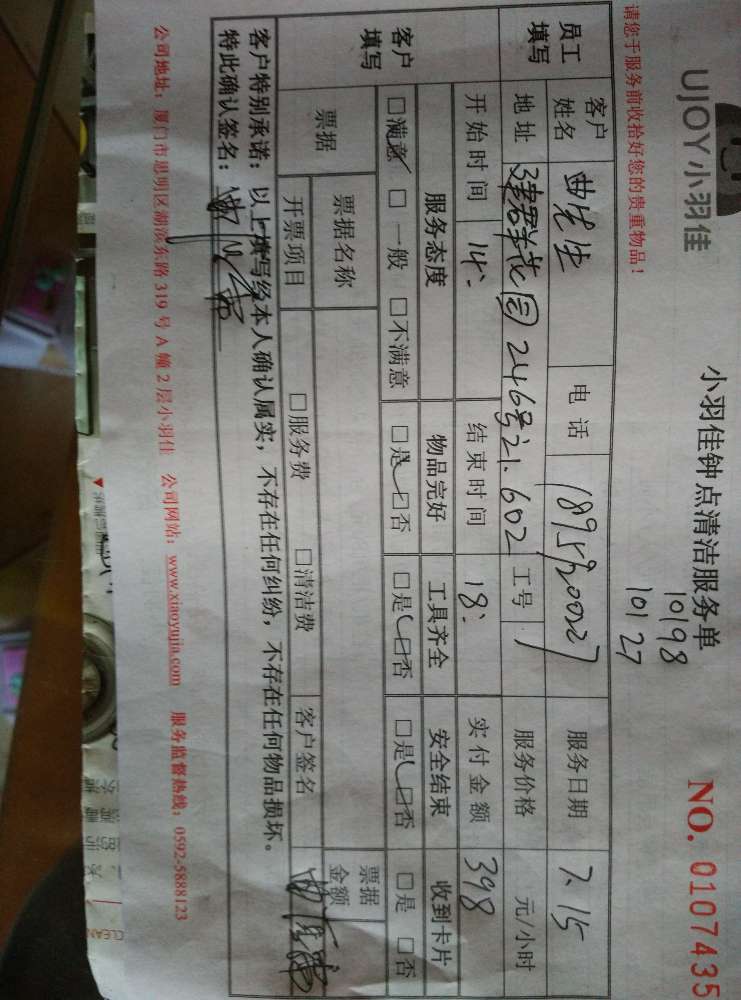 UJOY小羽佳
小羽佳钟点清洁服务单
NO. 0107435
请您于服务前收拾好您的贵重物品！
10198
10127
员工填写
客户姓名 曲先生 电话 服务日期 7.15
地址 建群花园246号21.602 工号 1 服务价格 元/小时
开始时间 14: 结束时间 18: 实付金额 398
客户填写
服务态度 物品完好 工具齐全 安全结束 收到卡片
□满意 □一般 □不满意 □是 □否 □是 □否 □是 □否 □是 □否
票据 票据名称 票据金额
开票项目 □服务费 □清洁费 客户签名
客户特别承诺：以上填写经本人确认属实，不存在任何纠纷，不存在任何物品损坏。
特此确认签名：
公司地址：厦门市思明区湖滨东路319号A幢2层小羽佳 公司网站：www.xiaoyujia.com 服务监督热线：0592-5888123
CLEAN